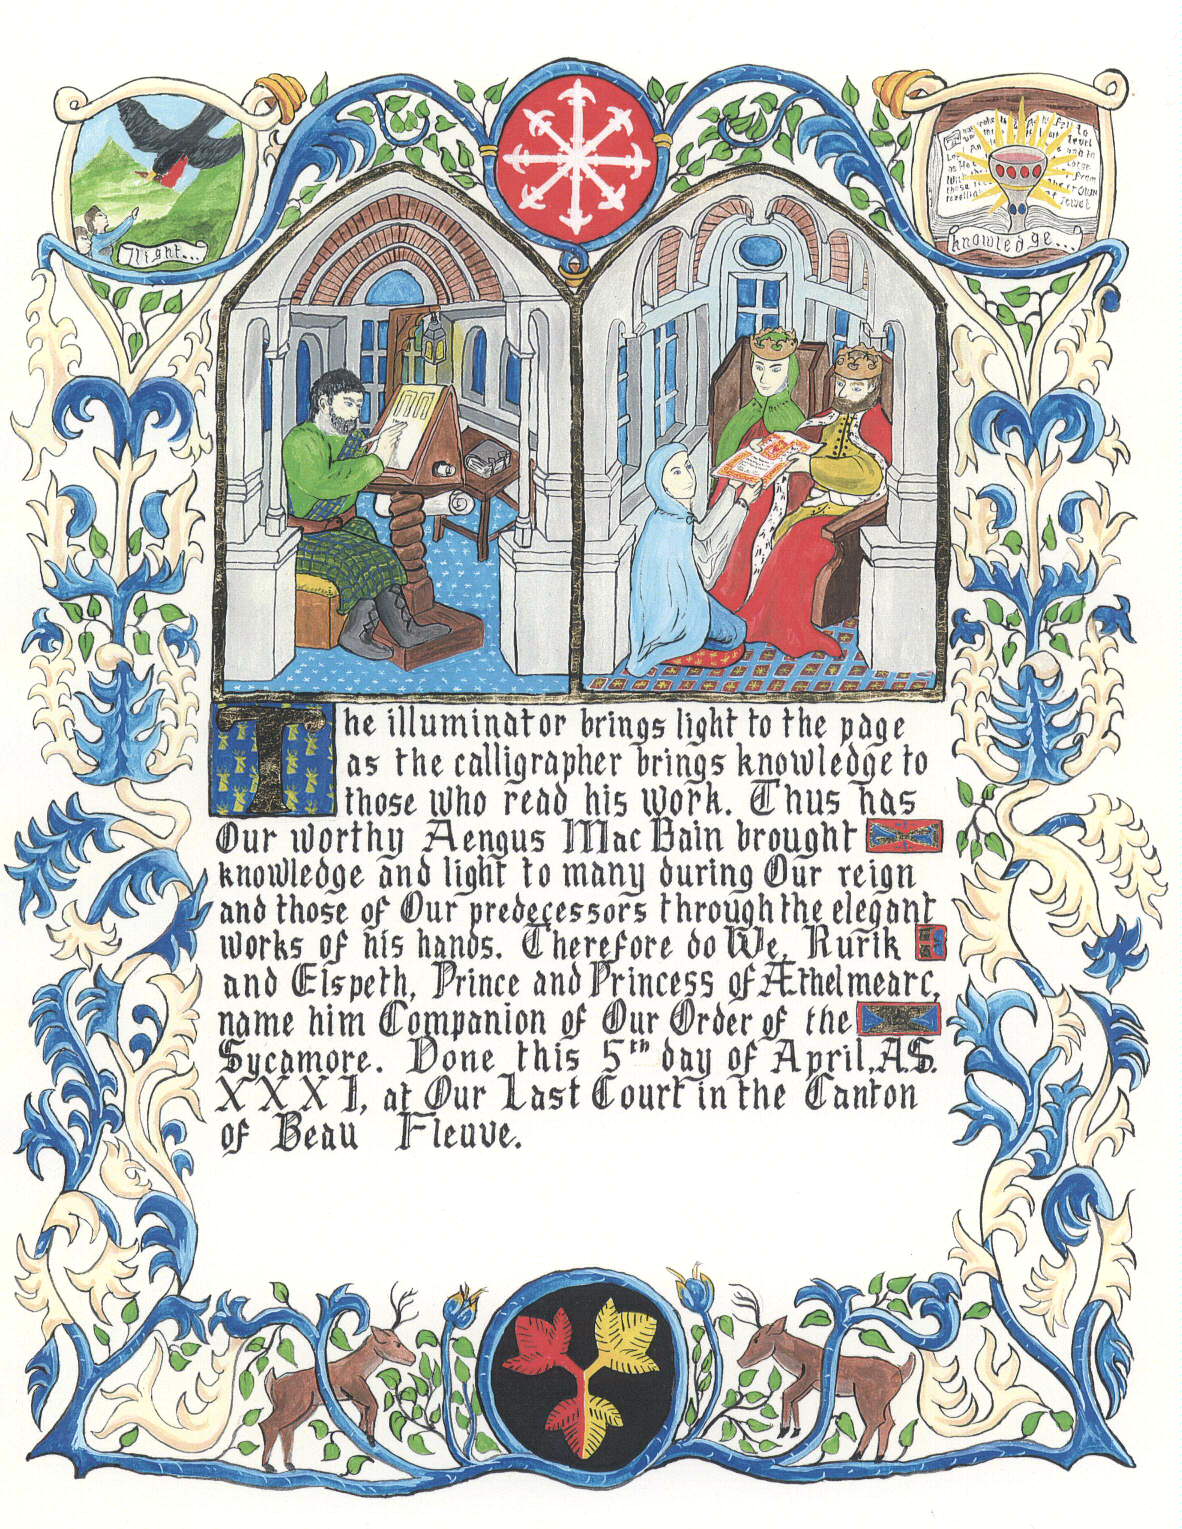 flight...
knowledge...
The illuminator brings light to the page
as the calligrapher brings knowledge to
those who read his work. Thus has
Our worthy Aengus Mac Bain brought
knowledge and light to many during Our reign
and those of Our predecessors through the elegant
works of his hands. Therefore do We, Rurik
and Elspeth, Prince and Princess of Æthelmearc,
name him Companion of Our Order of the
Sycamore. Done this 5th day of April, A.S.
XXXI, at Our Last Court in the Canton
of Beau Fleuve.